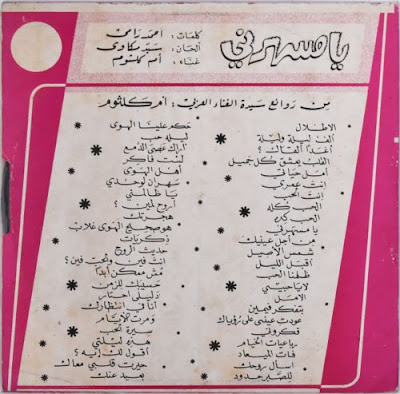 يا مسهرني
كلمات: أحمد رامي
ألحان: سيد مكاوي
غناء: أم كلثوم
من روائع سيدة الغناء العربي: أم كلثوم
الأطلال
ألف ليلة وليلة
أغداً ألقاك؟
القلب يعشق كل جميل
أمل حياتي
إنت عمري
إنت الحب
الحب كله
الحب كده
يا مسهرني
من أجل عينيك
شمس الأصيل
أقبل الليل
ظلمنا الحب
لا يا حبيبي
الأمل
بتفكر فيمين
عودت عيني على رؤياك
فكروني
رباعيات الخيام
فات الميعاد
اسأل روحك
للصبر حدود
حكم علينا الهوى
ليلة حب
أراك عصي الدمع
لسه فاكر
أهل الهوى
سهران لوحدي
يا ظالمني
أروح لمين؟
هجرتك
هو صحيح الهوى غلاب
ذكريات
حديث الروح
انت فين والحب فين؟
مش ممكن أبداً
حسيبك للزمن
دليلي احتار
أنا في انتظارك
ومرت الأيام
سيرة الحب
هذه ليلتي
أقول لك إيه؟
حيرت قلبي معاك
بعيد عنك